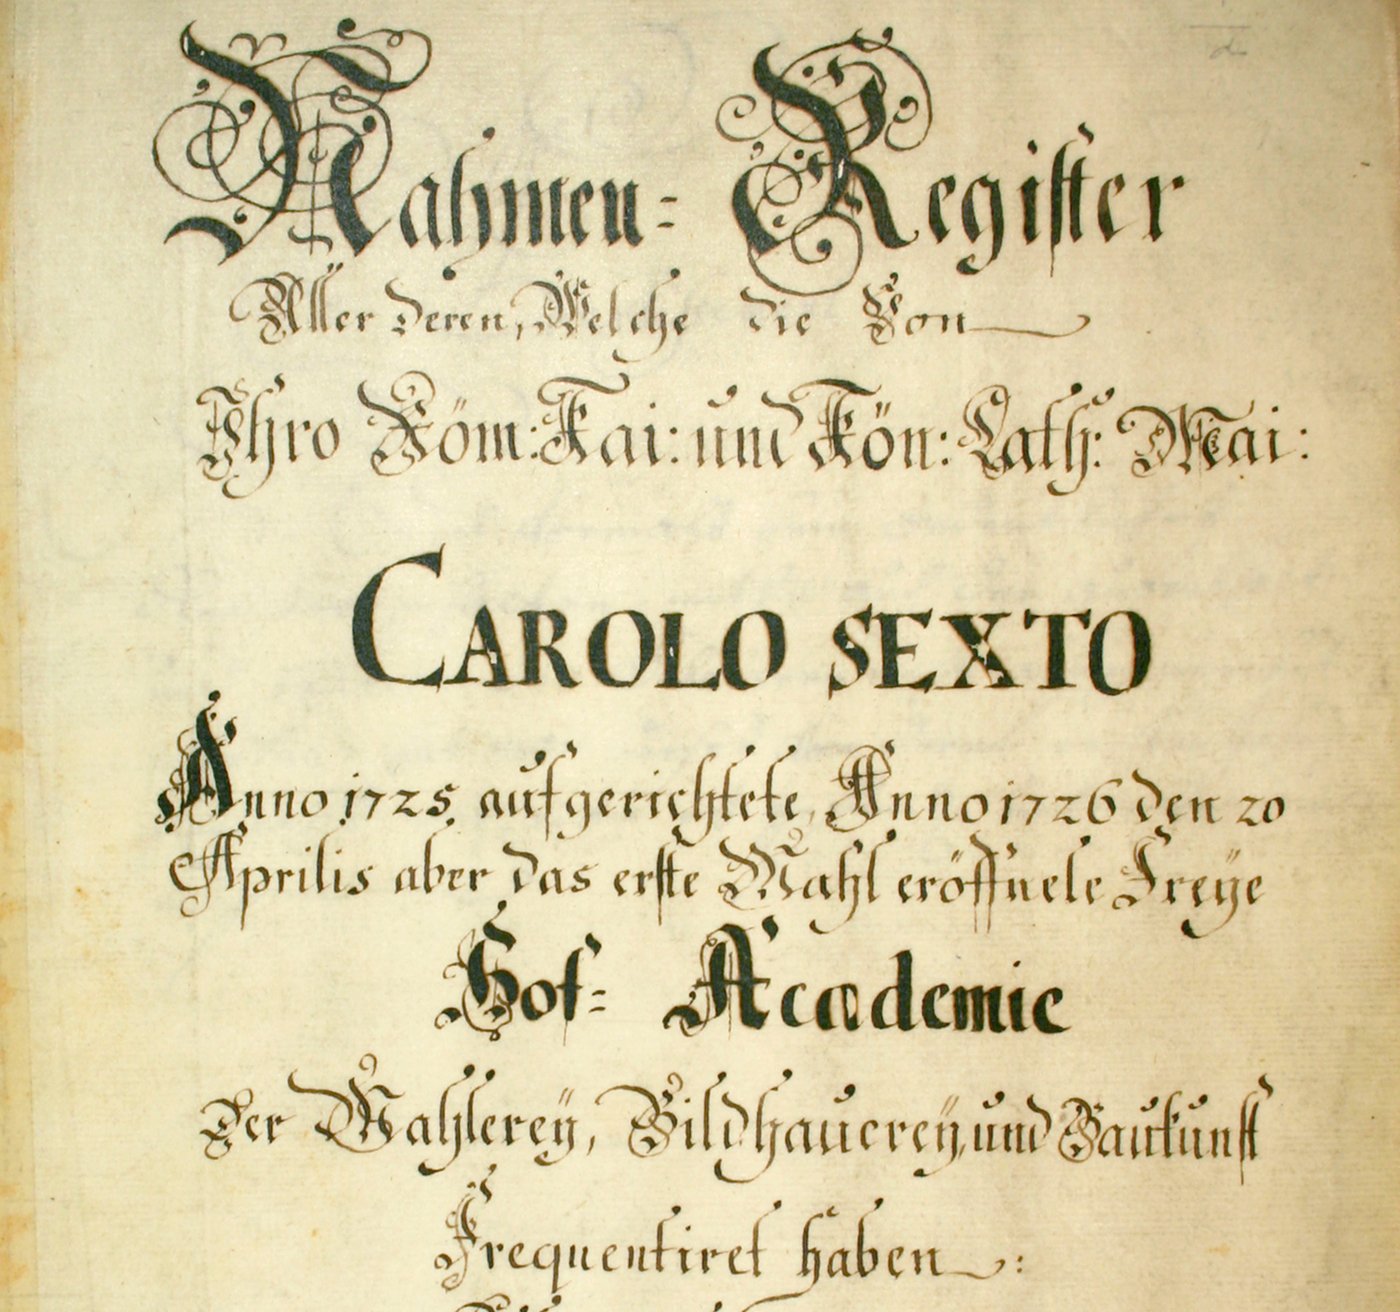 Nahmen= Register
Aller deren, Welche die Von
Ihro Röm: Kai: und Kön: Cath: Mai:
CAROLO SEXTO
Anno 1725 aufgerichtete, Anno 1726 den 20
Aprilis aber das erste Mahl eröffnete Freye
Hof= Academie
Der Mahlerey, Bildhauerey, und Baukunst
Frequentiret haben: